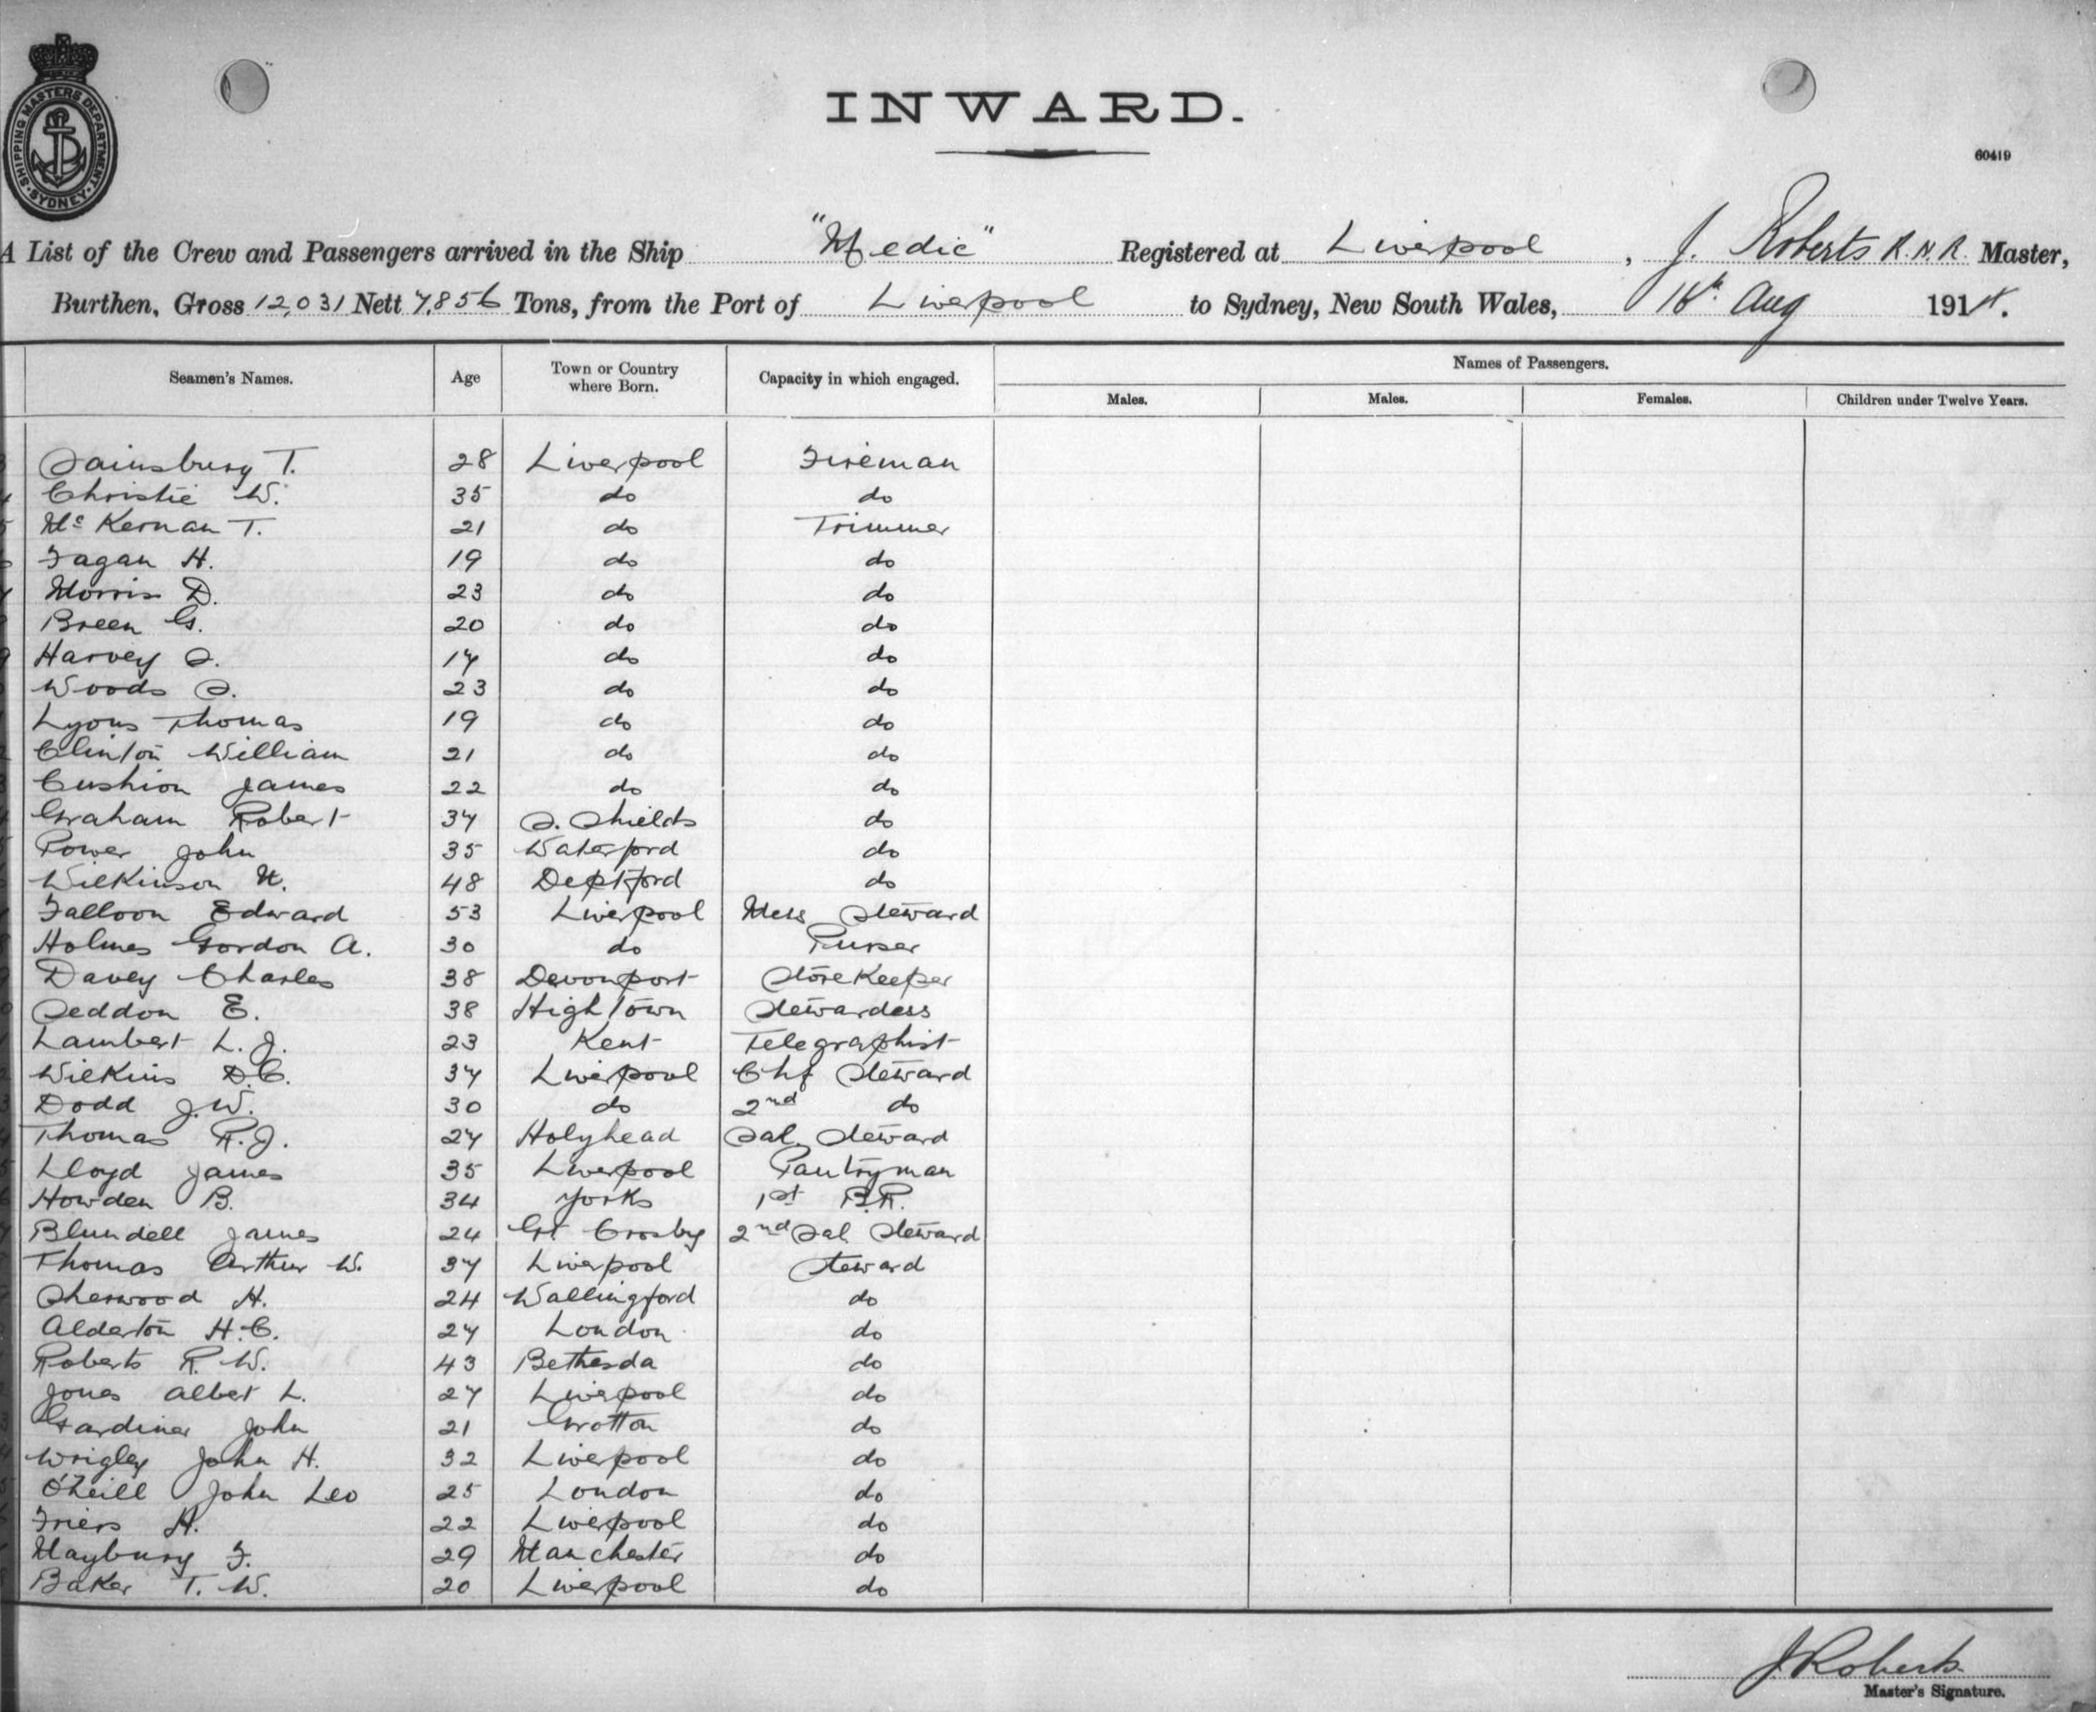 SHIPPING MASTERS DEPARTMENT · SYDNEY ·
INWARD.
60419
A List of the Crew and Passengers arrived in the Ship "Medic" Registered at Liverpool, J. Roberts R.N.R. Master,
Burthen, Gross 12,031 Nett 7,856 Tons, from the Port of Liverpool to Sydney, New South Wales, Aug 191
Seamen's Names. Age Town or Country where Born. Capacity in which engaged. Names of Passengers.
Males. Males. Females. Children under Twelve Years.
Sainsbury T. 28 Liverpool Fireman
Christie W. 35 do do
McKernan T. 21 do Trimmer
Fagan H. 19 do do
Morris D. 23 do do
Breen G. 20 do do
Harvey S. 17 do do
Woods S. 23 do do
Lyons Thomas 19 do do
Clinton William 21 do do
Cushion James 22 do do
Graham Robert 37 S. Shields do
Power John 35 Waterford do
Wilkinson 48 Deptford do
Falloon Edward 53 Liverpool Mess Steward
Holmes Gordon A. 30 do Purser
Davey Charles 38 Devonport Storekeeper
Seddon E. 38 Hightown Stewardess
Lambert L. J. 23 Kent Telegraphist
Wilkins D.C. 37 Liverpool Chf Steward
Dodd J.W. 30 do 2nd do
Thomas R.J. 27 Holyhead Sal. Steward
Lloyd James 35 Liverpool Pantryman
Howden B. 34 Yorks 1st B.R.
Blundell James 24 Gt Crosby 2nd Sal Steward
Thomas Arthur W. 37 Liverpool Steward
Sherwood H. 24 Wallingford do
Alderton H.C. 27 London do
Roberts R. W. 43 Bethesda do
Jones Albert L. 27 Liverpool do
Gardiner John 21 Grotton do
Wrigley John H. 32 Liverpool do
O'Neill John Leo 25 London do
Friers H. 22 Liverpool do
Maybury F. 29 Manchester do
Baker T. W. 20 Liverpool do
J Roberts
Master's Signature.